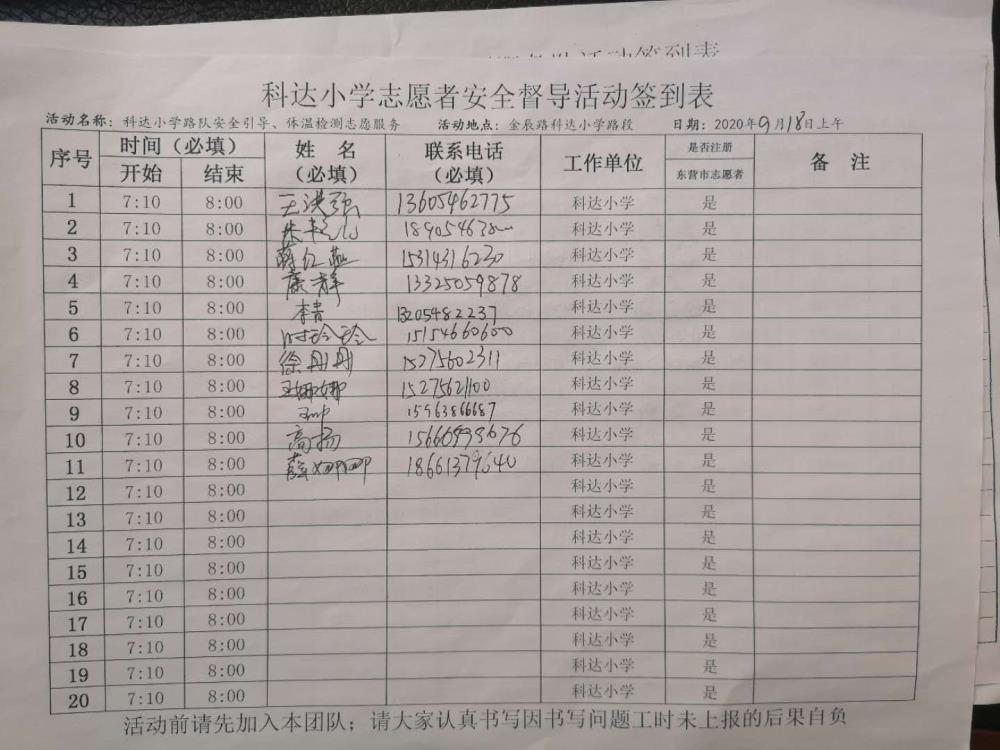 科达小学志愿者安全督导活动签到表
活动名称：科达小学路队安全引导、体温检测志愿服务 活动地点：金辰路科达小学路段 日期：2020年9月18日上午
序号 时间（必填） 姓 名（必填） 联系电话（必填） 工作单位 是否注册东营市志愿者 备 注
开始 结束
1 7:10 8:00 王洪强 13605462775 科达小学 是
2 7:10 8:00 科达小学 是
3 7:10 8:00 蒋红燕 15314316230 科达小学 是
4 7:10 8:00 康群 13325059878 科达小学 是
5 7:10 8:00 李青 13205482237 科达小学 是
6 7:10 8:00 时玲玲 15154660600 科达小学 是
7 7:10 8:00 徐丹丹 15275602311 科达小学 是
8 7:10 8:00 王娜娜 15275621100 科达小学 是
9 7:10 8:00 15963866687 科达小学 是
10 7:10 8:00 高扬 15660998676 科达小学 是
11 7:10 8:00 薛娜娜 18661379640 科达小学 是
12 7:10 8:00 科达小学 是
13 7:10 8:00 科达小学 是
14 7:10 8:00 科达小学 是
15 7:10 8:00 科达小学 是
16 7:10 8:00 科达小学 是
17 7:10 8:00 科达小学 是
18 7:10 8:00 科达小学 是
19 7:10 8:00 科达小学 是
20 7:10 8:00 科达小学 是
活动前请先加入本团队；请大家认真书写因书写问题工时未上报的后果自负